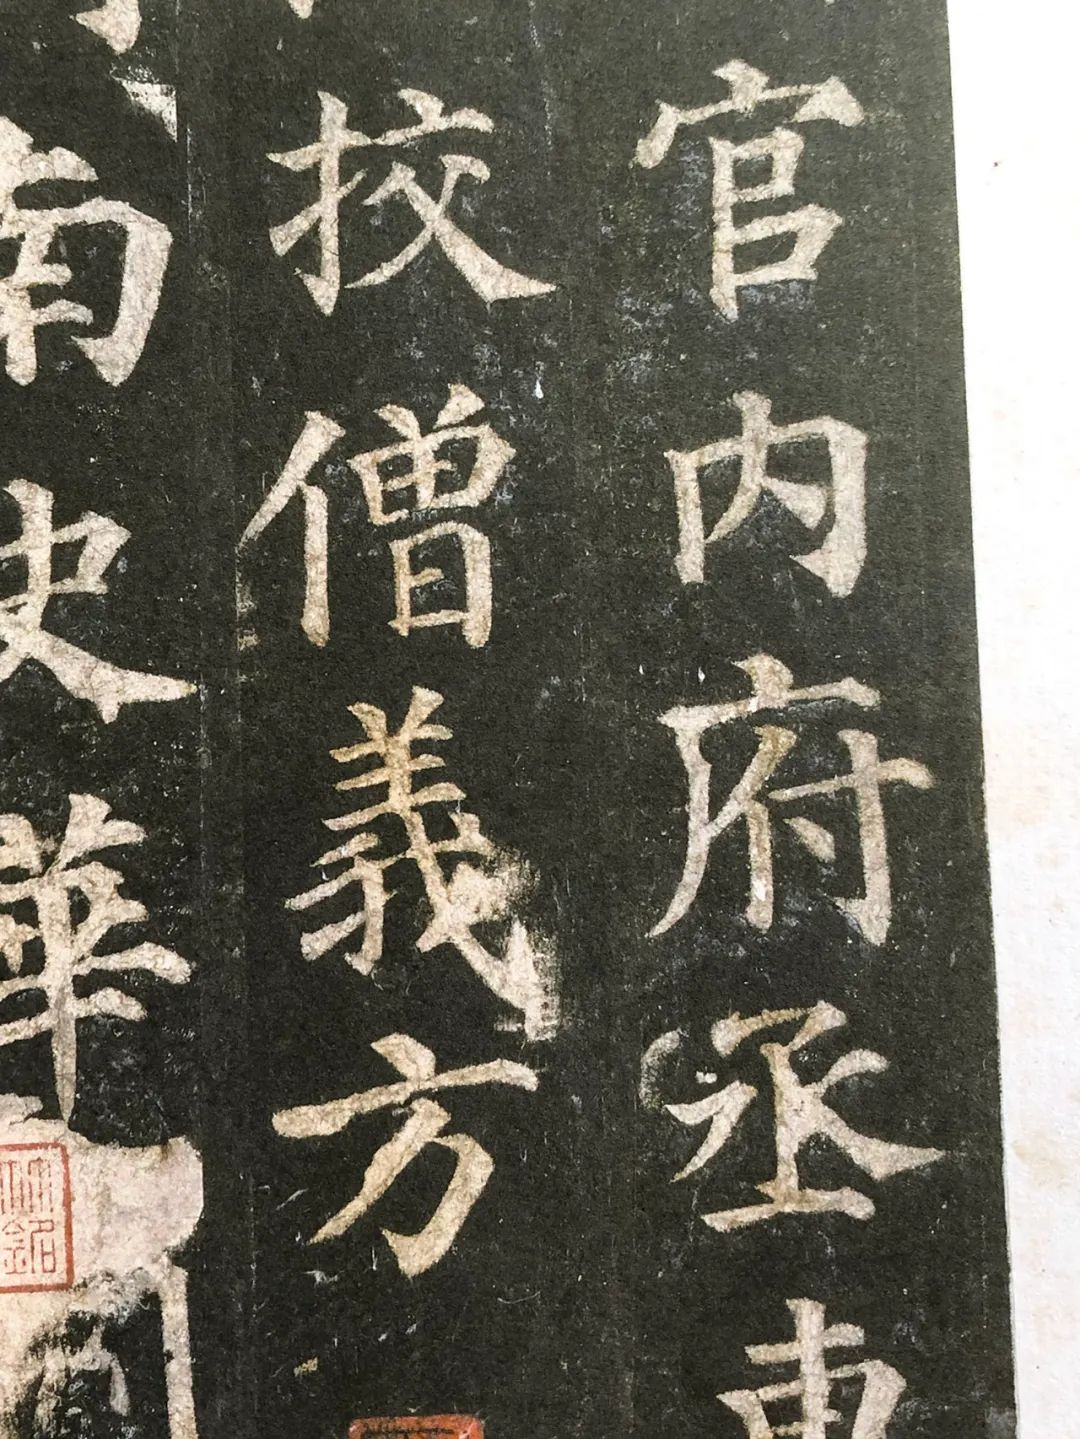 官内府丞東
挍僧義方
南史華